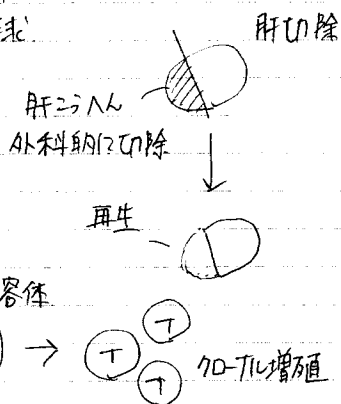 球
肝切除
肝こうへん
外科的に切除
再生
容体
T
T
T
クローナル増殖